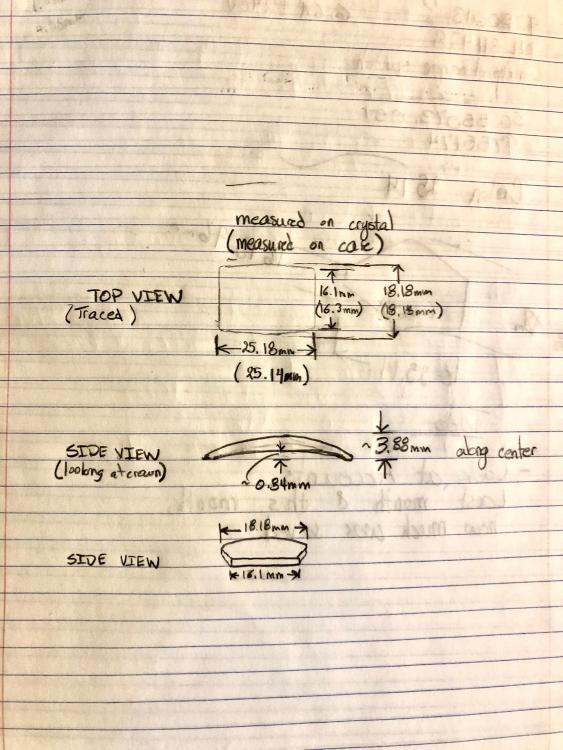 measured on crystal
(measured on case)
TOP VIEW
(Traced)
16.1mm
(16.3mm)
18.18mm
(18.13mm)
25.18mm
(25.14mm)
SIDE VIEW
(loolong at crown)
~ 3.88mm along center
~ 0.84mm
18.18mm
SIDE VIEW
16.1mm